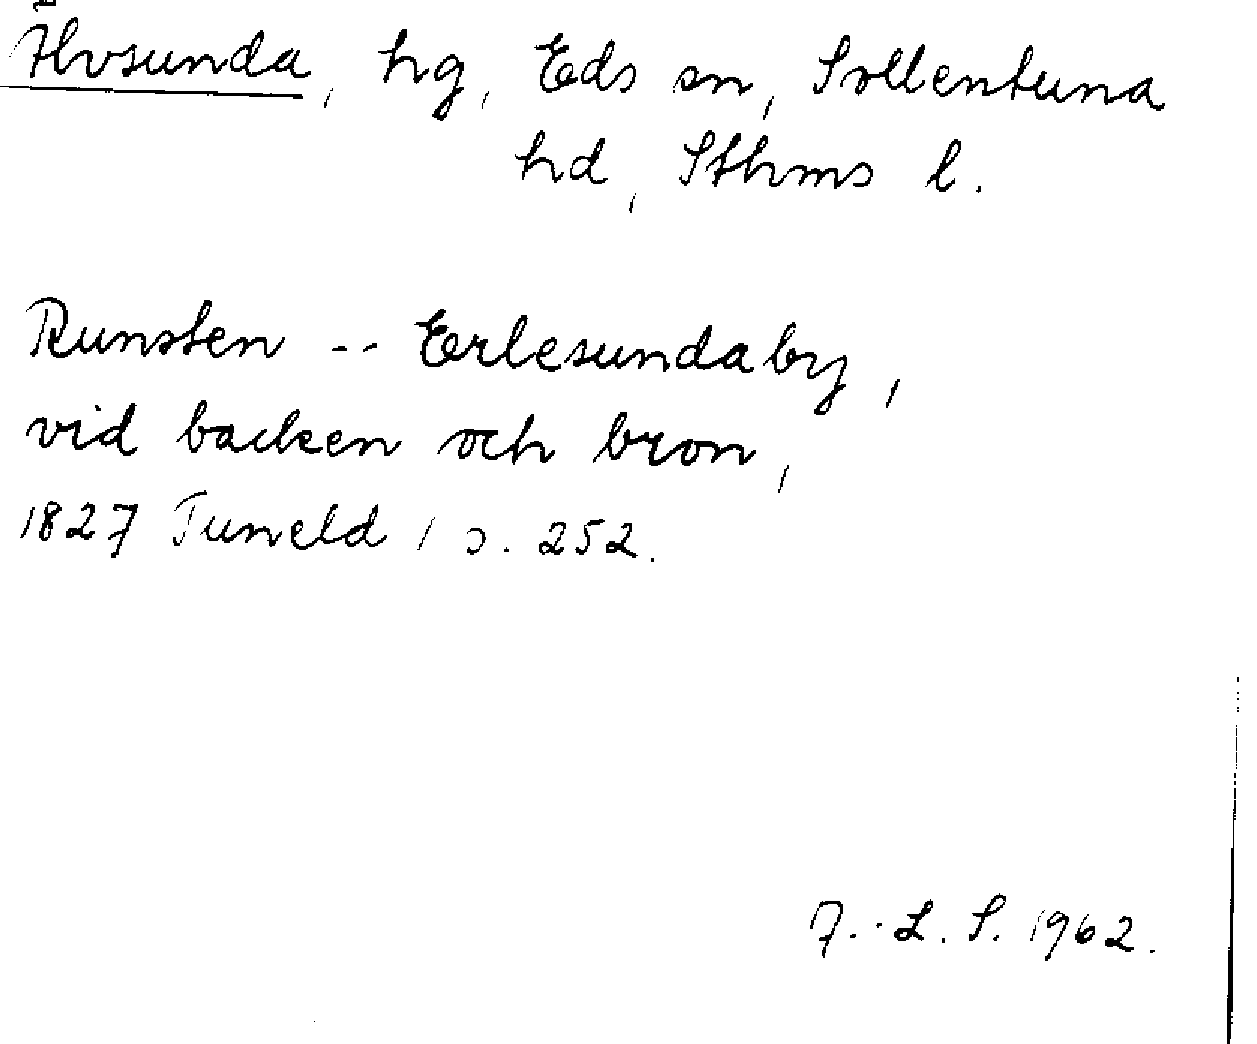 Älvsunda, hg, Eds sn, Sollentuna
hd, Sthms l.
Runsten -- Erlesundaby,
vid backen och bron,
1827 Tuneld 1 s. 252.
L. S. 1962.